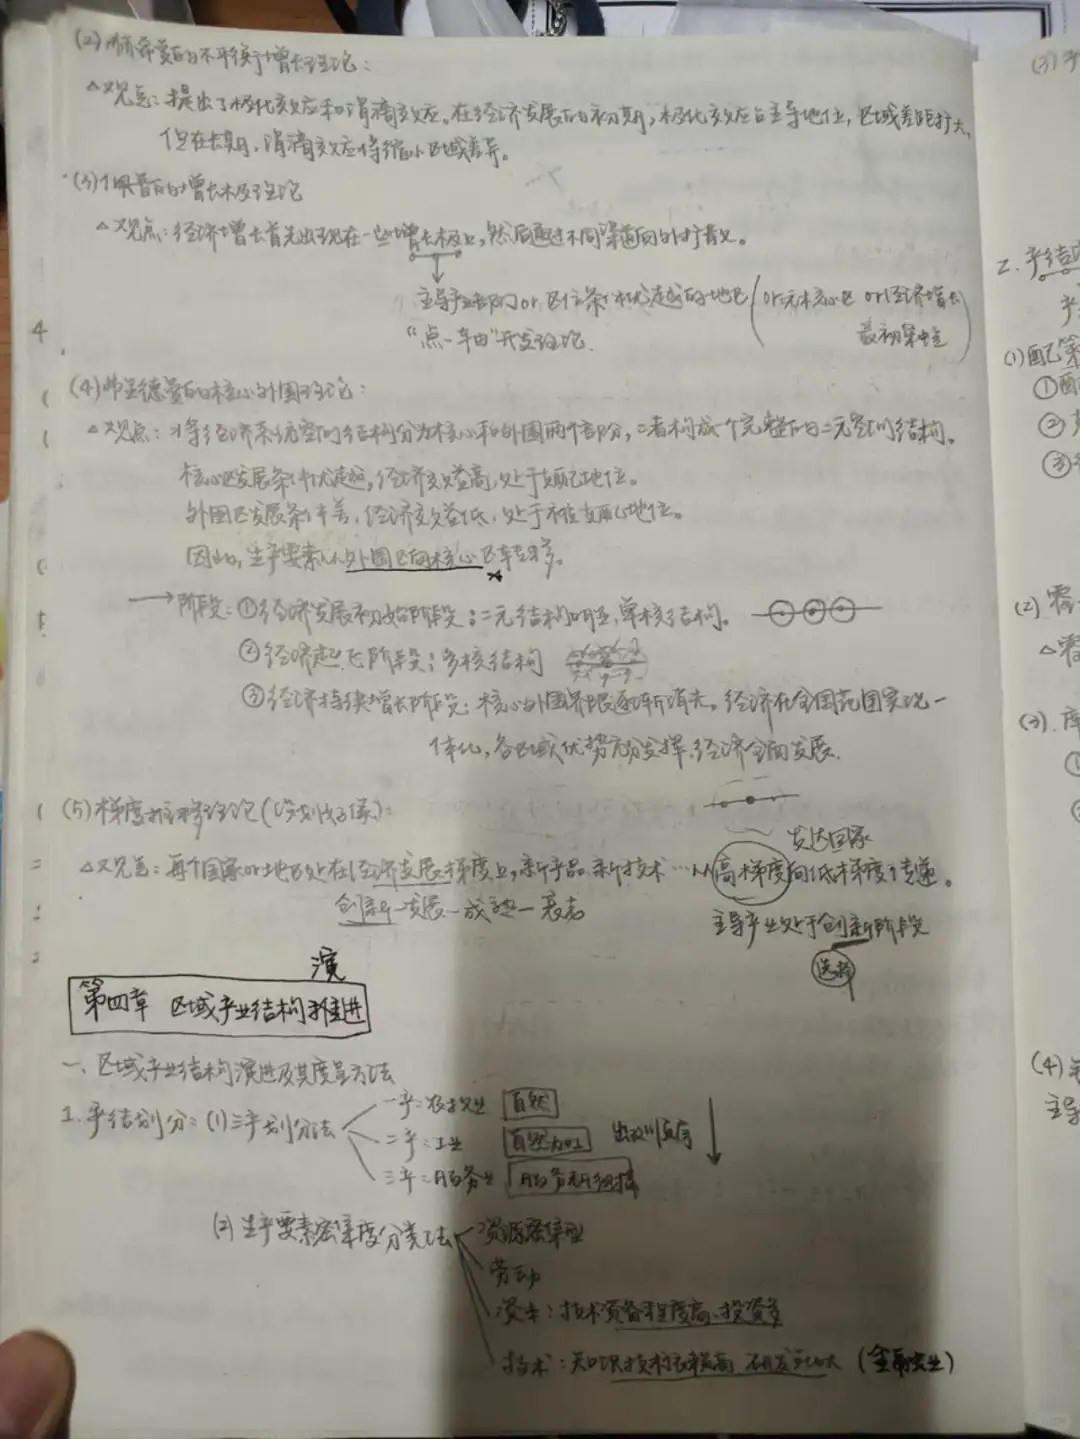 (2)赫希曼的不平衡增长理论：
△观点：提出了极化效应和涓滴效应。在经济发展的初期，极化效应占主导地位，区域差距扩大，
但在长期，涓滴效应将缩小区域差异。
(3)佩鲁的增长极理论
△观点：经济增长首先出现在一些增长极上，然后通过不同渠道向外扩散。
主导产业部门or区位条件优越的地区(or核心区 or经济增长
最初
"点—轴"开发理论
(4)弗里德曼的核心外围理论：
△观点：将经济系统空间结构分为核心和外围两个部分，二者构成一个完整的二元空间结构。
核心区发展条件优越，经济效益高，处于支配地位。
外围区发展条件差，经济效益低，处于被支配地位。
因此，生产要素从外围区向核心区转移。
→阶段：①经济发展初始阶段：二元结构明显，单核结构。
②经济起飞阶段：多核结构
③经济持续增长阶段：核心外围界限逐渐消失。经济在全国范围实现一
体化，各区域优势充分发挥，经济全面发展.
(5)梯度推移理论()：
发达国家
△观点：每个国家or地区处在经济发展梯度上，新产品新技术…从高梯度向低梯度传递。
创新—发展—成熟—衰老
主导产业处于创新阶段
选择
演
第四章 区域产业结构推进
一、区域产业结构演进及其度量方法
1.产结划分：(1)三产划分法
一产：农牧业 自然
二产：工业 自然加工 出现顺序
三产：服务业
(2)生产要素密集度分类法
资源密集型
劳动
资本：技术装备程度高、投资多
技术：知识技术依赖高
(3)
2.产结
(1)配第
①配
②
③
(2)霍
△霍
(3).库
①
(4)
主导
4